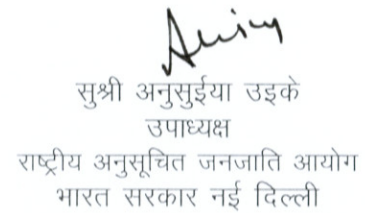 सुश्री अनुसुईया उइके
उपाध्यक्ष
राष्ट्रीय अनुसूचित जनजाति आयोग
भारत सरकार नई दिल्ली